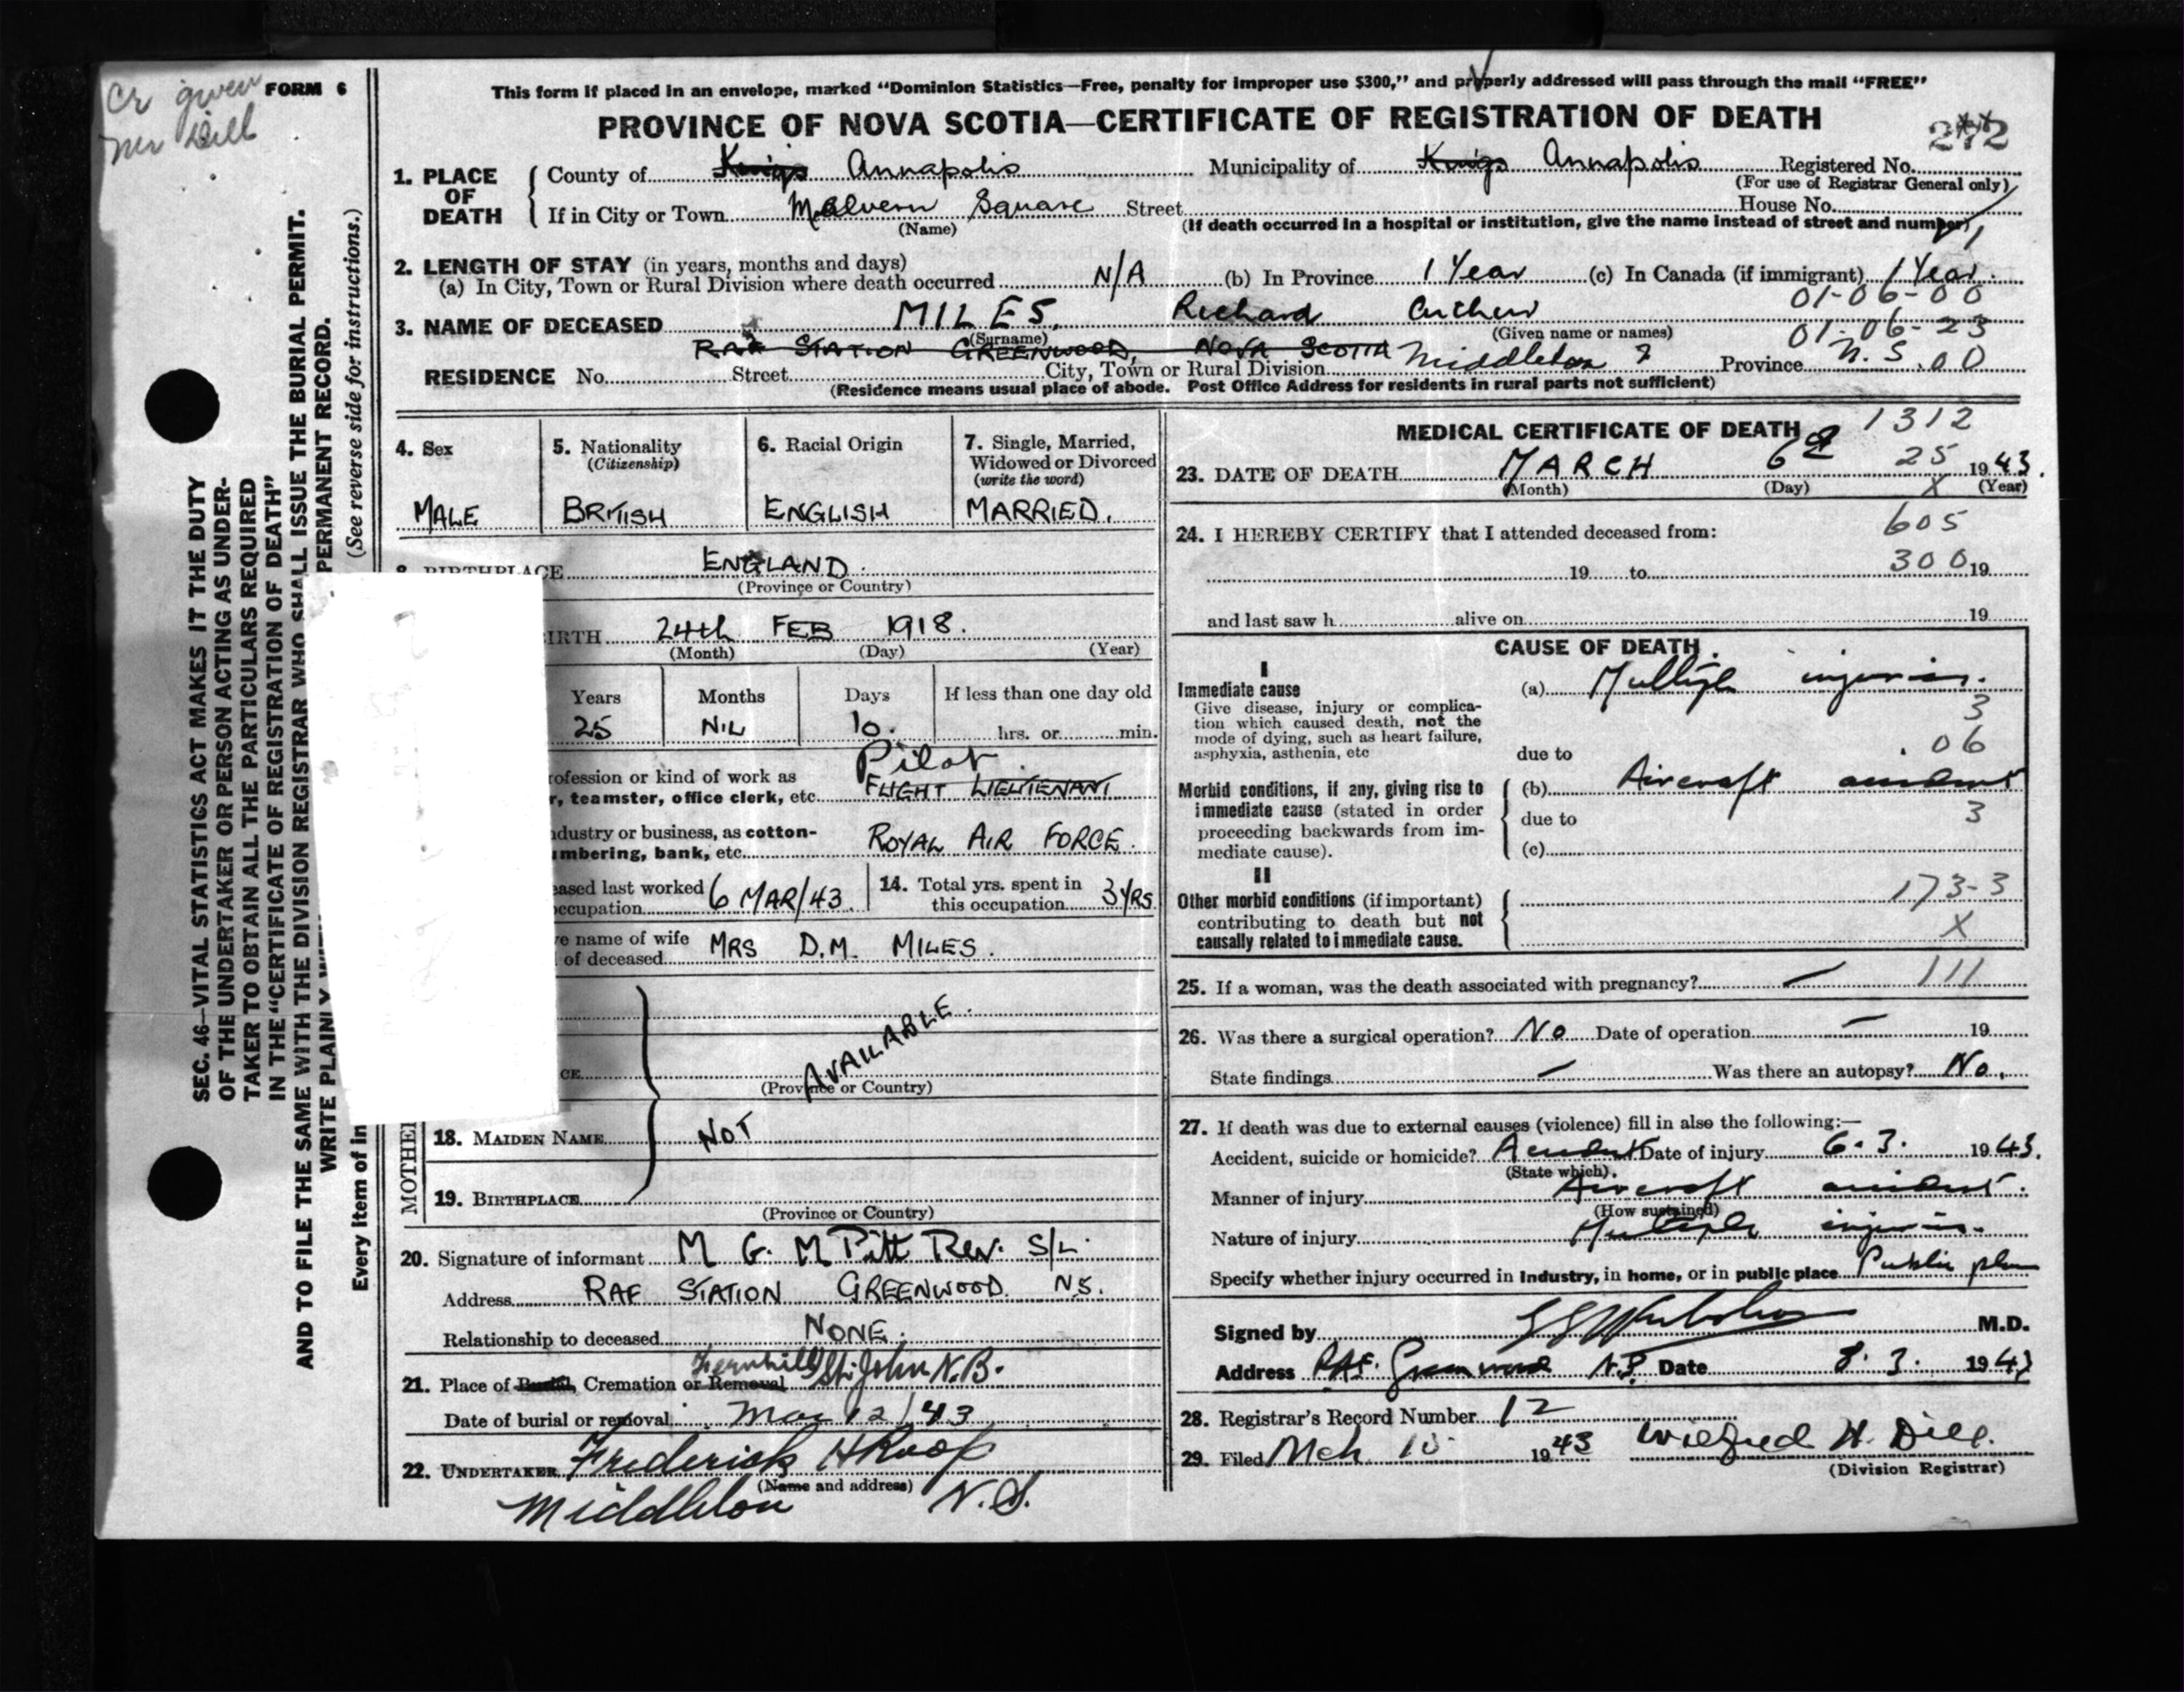 Cr given
Mr Dill
FORM 6
This form if placed in an envelope, marked "Dominion Statistics—Free, penalty for improper use $300," and properly addressed will pass through the mail "FREE"
PROVINCE OF NOVA SCOTIA—CERTIFICATE OF REGISTRATION OF DEATH
272
1. PLACE OF DEATH
County of Kings Annapolis Municipality of Kings Annapolis Registered No.
(For use of Registrar General only)
If in City or Town Melvern Square Street House No.
(Name) (If death occurred in a hospital or institution, give the name instead of street and number)
2. LENGTH OF STAY (in years, months and days)
(a) In City, Town or Rural Division where death occurred N/A (b) In Province 1 Year (c) In Canada (if immigrant) 1 Year.
01-06-00
3. NAME OF DECEASED MILES, Richard Arthur
(Surname) (Given name or names) 01-06-23
RAF STATION GREENWOOD, NOVA SCOTIA Middleton ? N.S. 00
RESIDENCE No. Street City, Town or Rural Division Province
(Residence means usual place of abode. Post Office Address for residents in rural parts not sufficient)
4. Sex
MALE
5. Nationality
(Citizenship)
BRITISH
6. Racial Origin
ENGLISH
7. Single, Married,
Widowed or Divorced
(write the word)
MARRIED.
8. BIRTHPLACE ENGLAND.
(Province or Country)
IRTH 24th FEB 1918.
(Month) (Day) (Year)
Years Months Days If less than one day old
25 NIL 10. hrs. or min.
Pilot
rofession or kind of work as
r, teamster, office clerk, etc. FLIGHT LIEUTENANT
ndustry or business, as cotton-
mbering, bank, etc. ROYAL AIR FORCE.
eased last worked
occupation 6 MAR/43.
14. Total yrs. spent in
this occupation 3 YRS
e name of wife
of deceased MRS D.M. MILES.
CE
(Province or Country)
NOT AVAILABLE.
MOTHER
18. MAIDEN NAME
19. BIRTHPLACE
(Province or Country)
20. Signature of informant M G. M Pitt Rev. S/L.
Address RAF STATION GREENWOOD N.S.
Relationship to deceased NONE.
21. Place of Burial, Cremation or Removal Fernhill St. John N.B.
Date of burial or removal Mar 12/43
22. UNDERTAKER Frederick H Roop
(Name and address)
Middleton N.S.
MEDICAL CERTIFICATE OF DEATH
1312
23. DATE OF DEATH MARCH 6 25 1943.
(Month) (Day) X (Year)
24. I HEREBY CERTIFY that I attended deceased from:
605
19 to 300 19
and last saw h alive on 19
CAUSE OF DEATH
I
Immediate cause
Give disease, injury or complica-
tion which caused death, not the
mode of dying, such as heart failure,
asphyxia, asthenia, etc
(a) Multiple injuries.
3
06
due to
Morbid conditions, if any, giving rise to
immediate cause (stated in order
proceeding backwards from im-
mediate cause).
(b) Aircraft accident
due to 3
(c)
II
Other morbid conditions (if important)
contributing to death but not
causally related to immediate cause.
173-3
X
25. If a woman, was the death associated with pregnancy? — 111
26. Was there a surgical operation? No Date of operation — 19
State findings — Was there an autopsy? No.
27. If death was due to external causes (violence) fill in also the following:—
Accident, suicide or homicide? Accident Date of injury 6. 3. 1943.
(State which).
Manner of injury Aircraft accident.
(How sustained)
Nature of injury Multiple injuries.
Specify whether injury occurred in Industry, in home, or in public place Public place
Signed by M.D.
Address RAF. Greenwood N.S. Date 8. 3. 1943
28. Registrar's Record Number 12
29. Filed Mch 10 1943 Wilfred H. Dill.
(Division Registrar)
SEC. 46—VITAL STATISTICS ACT MAKES IT THE DUTY
OF THE UNDERTAKER OR PERSON ACTING AS UNDER-
TAKER TO OBTAIN ALL THE PARTICULARS REQUIRED
IN THE "CERTIFICATE OF REGISTRATION OF DEATH"
AND TO FILE THE SAME WITH THE DIVISION REGISTRAR WHO SHALL ISSUE THE BURIAL PERMIT.
WRITE PLAINLY WITH PERMANENT RECORD.
Every item of in (See reverse side for instructions.)